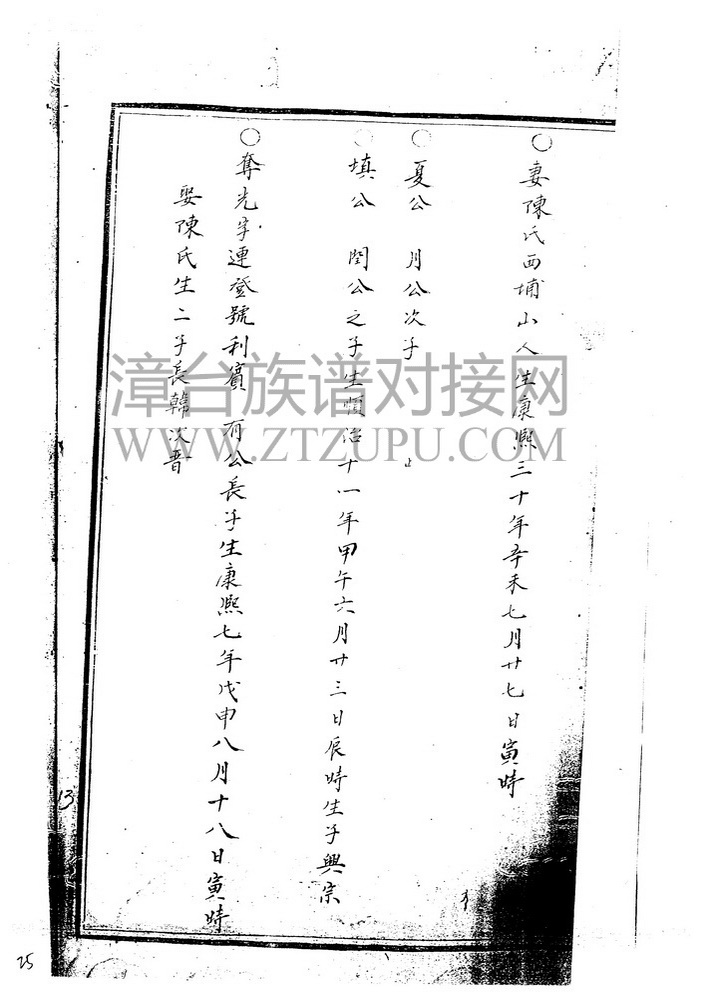 ○妻陳氏西埔山人生康熙三十年辛未七月廿七日寅時
○夏公 月公次子 止
○填公 閏公之子生順治十一年甲午六月廿三日辰時生子興宗
○奪光字連登號利賓 有公長子生康熙七年戊申八月十八日寅時
娶陳氏生二子長韓次晋
漳台族谱对接网
WWW.ZTZUPU.COM
13
25